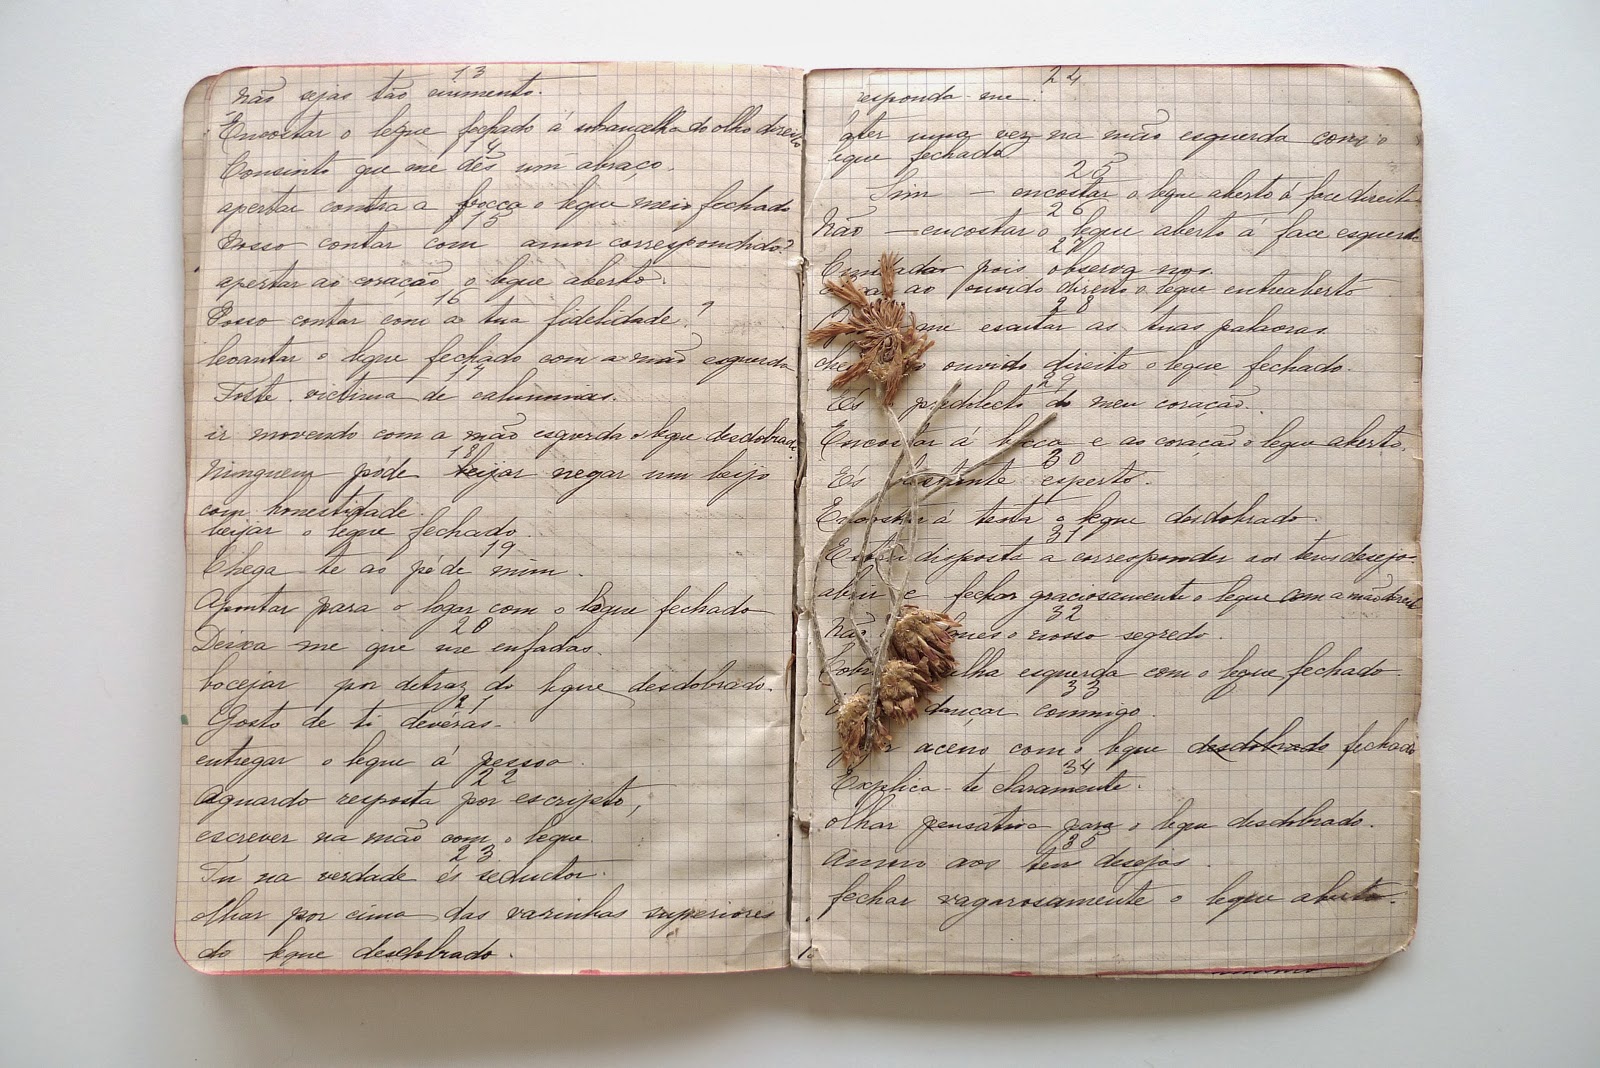 13
Não sejas tão ciumento.
Encostar o leque fechado á sobrancelha do olho direito
4
Consinto que me dês um abraço.
apertar contra a bocca o leque meio fechado
15
Posso contar com amor correspondido?
apertar ao coração o leque aberto.
16
Posso contar com a tua fidelidade?
levantar o leque fechado com a mão esquerda
17
Foste victima de calumnias.
ir movendo com a mão esquerda o leque desdobrado.
18
Ninguem póde beijar negar um beijo
com honestidade.
beijar o leque fechado.
19
Chega-te ao pé de mim.
Apontar para o logar com o leque fechado
20
Deixa me que me enfadas.
bocejar por detraz do leque desdobrado.
21
Gosto de ti devéras.
entregar o leque á pessoa.
22
Aguardo resposta por escripto,
escrever na mão com o leque.
23
Tu na verdade és seductor.
olhar por cima das varinhas superiores
do leque desdobrado.
24
esponda-me.
bater uma vez na mão esquerda com o
leque fechado
25
Sim — encostar o leque aberto á face direita
26
Não — encostar o leque aberto á face esquerda
27
pois
ao ouvido direito o leque entreaberto
28
me escutar as tuas palavras.
ouvido direito o leque fechado.
29
És predilecto do meu coração.
Encostar á bocca e ao coração o leque aberto.
30
És bastante esperto.
Encostar á testa o leque desdobrado.
31
Estou disposta a corresponder aos teus desejos.
abrir e fechar graciosamente o leque com a mão direita
32
Não o nosso segredo.
esquerda com o leque fechado
33
dançar commigo.
aceno com o leque desdobrado fechado
34
Explica-te claramente.
olhar pensativa para o leque desdobrado.
35
Annuo aos teus desejos.
fechar vagarosamente o leque aberto.